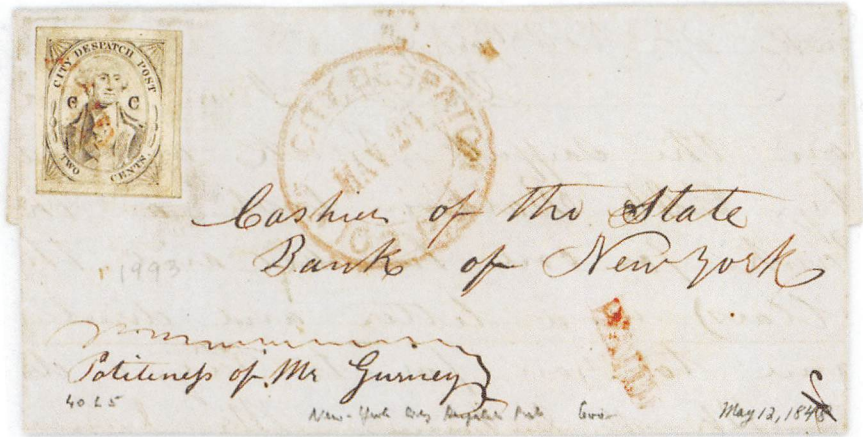 CITY DESPATCH POST
C C
TWO CENTS
CITY DESPATCH
Cashier of the State
Bank of New York
1993
PAID
Politeness of Mr Gurney
40 L 5
New-York City Post
May 12, 184